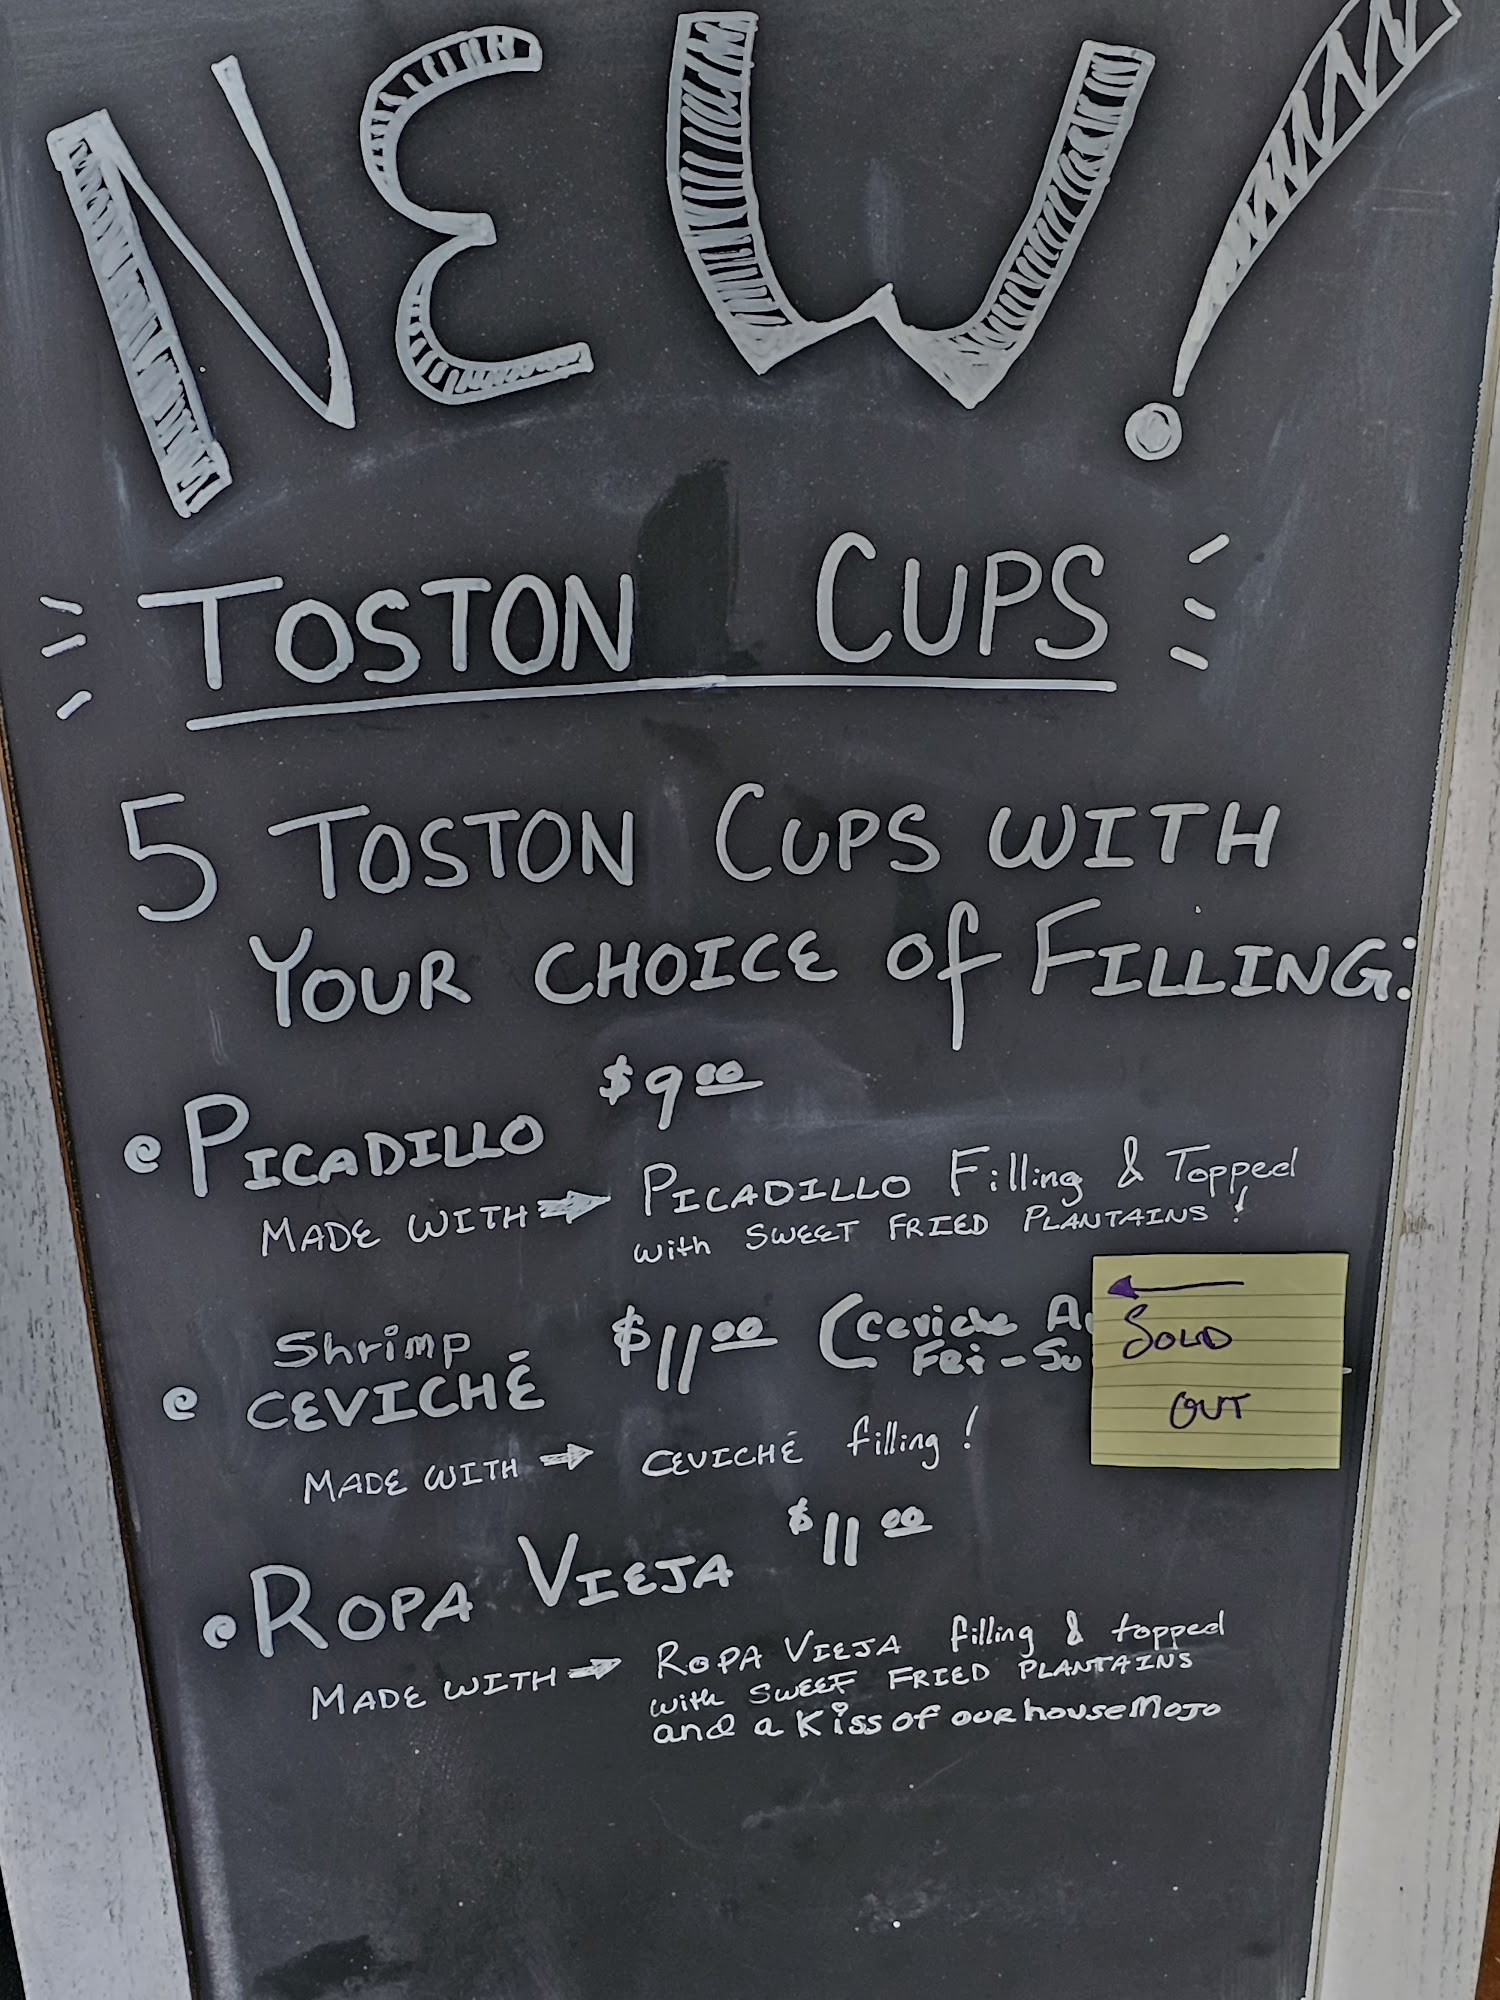 NEW!
TOSTON CUPS
5 TOSTON CUPS WITH
YOUR CHOICE of FILLING:
PICADILLO $9.00
MADE WITH → PICADILLO Filling & Topped
with SWEET FRIED PLANTAINS!
Shrimp
CEVICHÉ $11.00 (Ceviche
Fri-
MADE WITH → CEVICHÉ filling!
← SOLD
OUT
ROPA VIEJA $11.00
MADE WITH → ROPA VIEJA filling & topped
with SWEET FRIED PLANTAINS
and a Kiss of our house Mojo